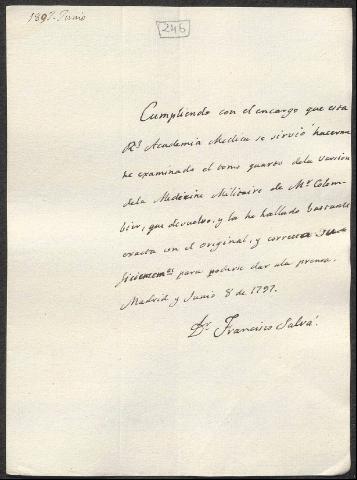 1897. Junio
246
Cumpliendo con el encargo que esta
Rl. Academia Medica se sirvió hacerme
he examinado el tomo quarto dela version
dela Medicina Militaire de Mr. Colom-
bier, que devuelvo, y la he hallado bastante
exacta con el original, y correcta su-
ficientemte. para poderse dar ala prensa.
Madrid y Junio 8 de 1797.
Dr. Francisco Salvá.